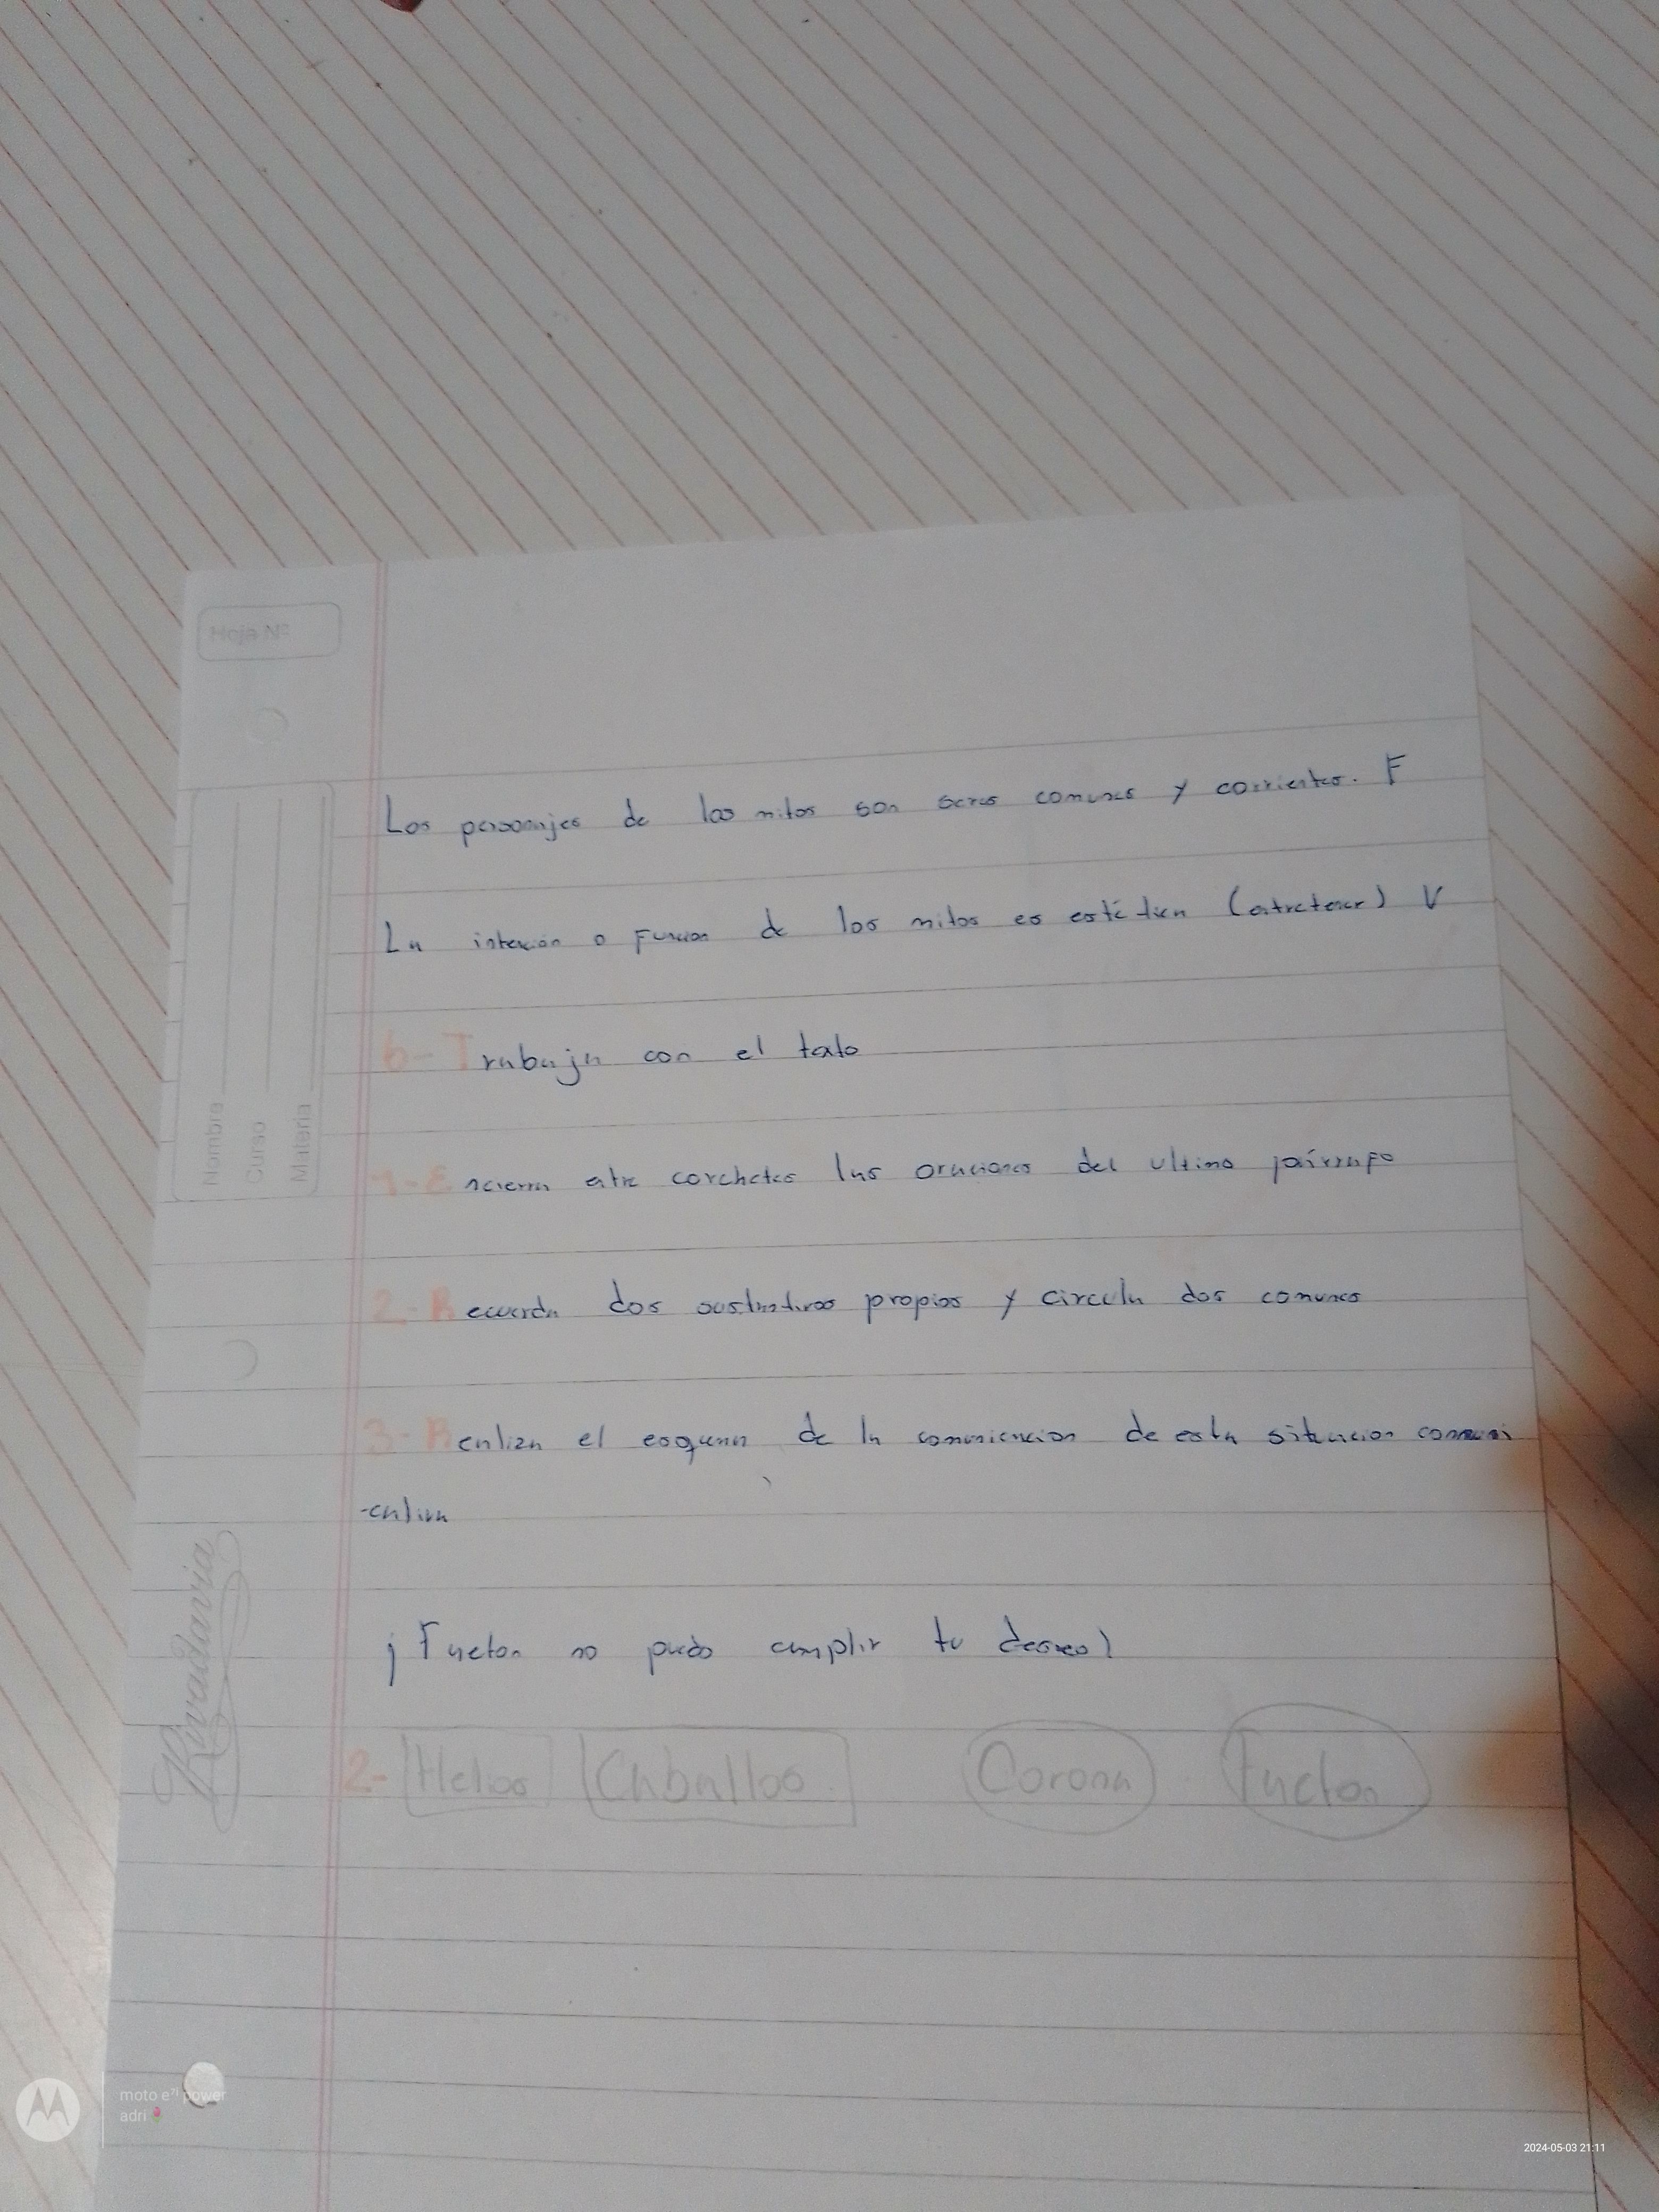 Hoja Nº
Nombre
Curso
Materia
Rivadavia
Los personajes de los mitos son seres comunes y corrientes. F
La intención o Funcion de los mitos es estética (entretener) V
6- Trabaja con el texto
1- Encierra entre corchetes las oraciones del ultimo párrafo
2- Recuerda dos sustantivos propios y circula dos comunes
3- Realiza el esquema de la comunicacion de esta situacion comuni
-cativa
¡Faeton no puedo cumplir tu deseo!
2- Helios Caballos. Corona Faeton
moto e⁷ⁱ power
adri
2024-05-03 21:11